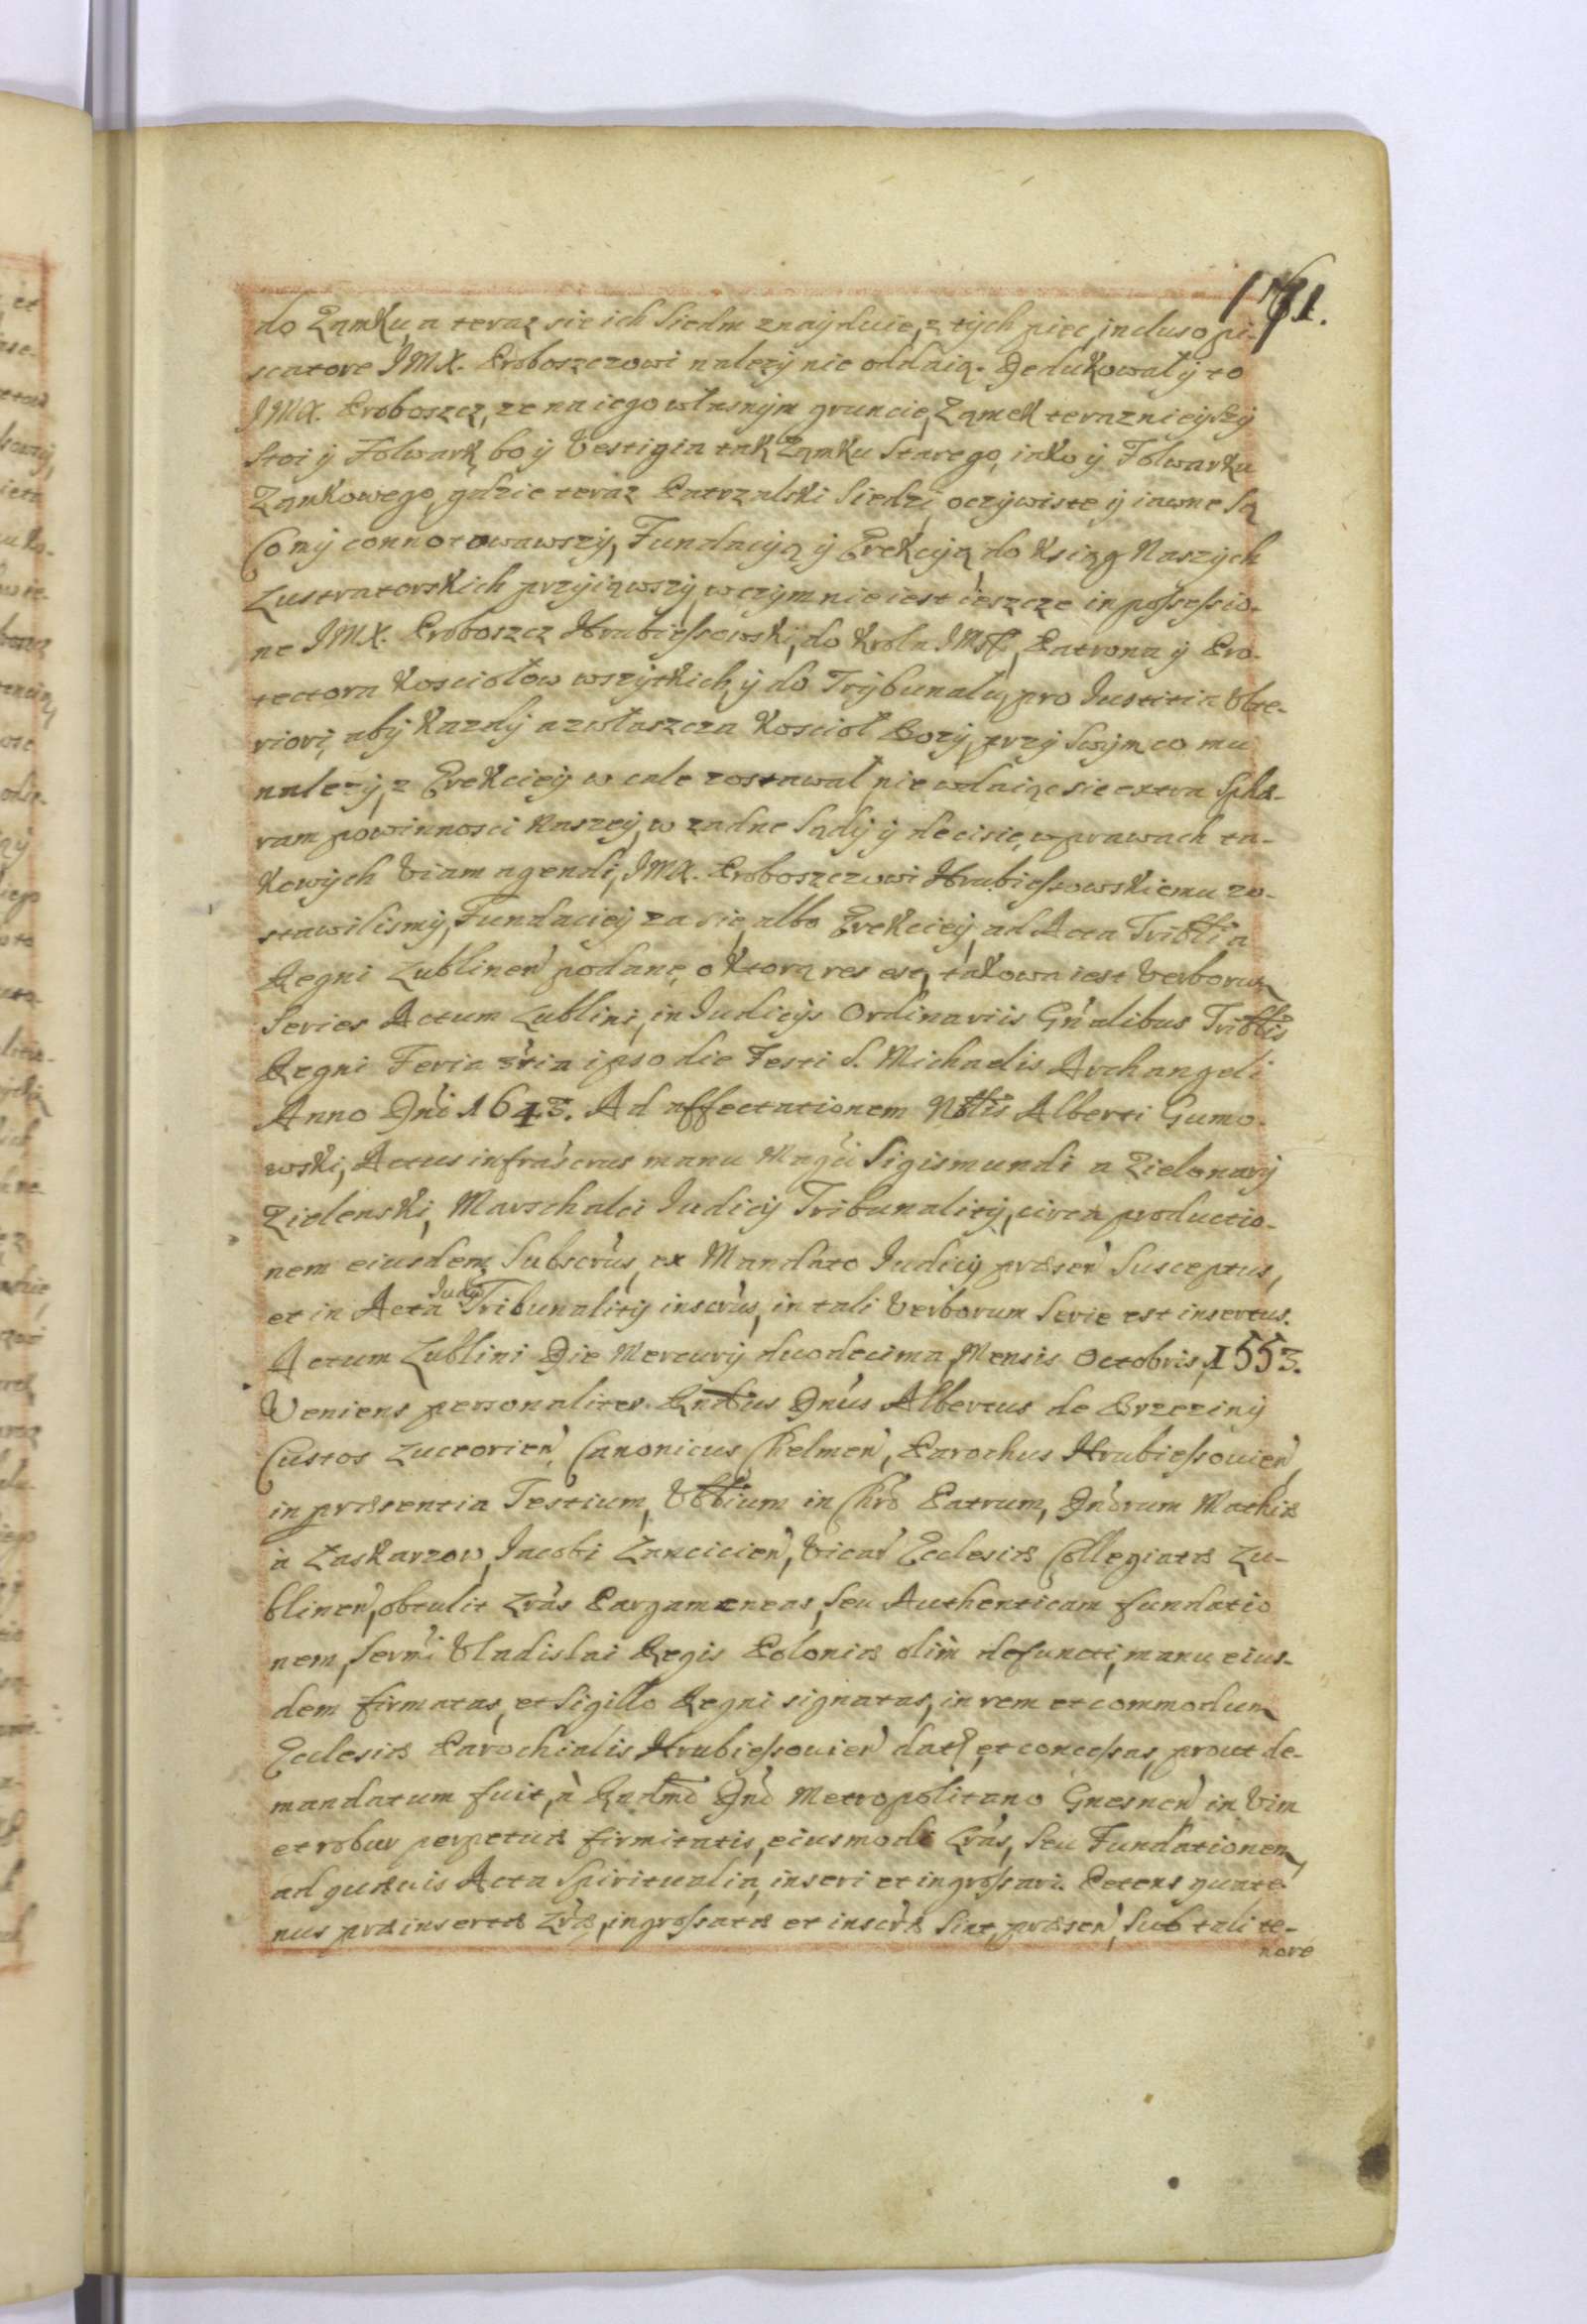 171.
do Zamku, a teraz sie ich siedm znayduie, z tych piec, incluso pi-
scatore JMX. Proboszczowi nalezy nie oddaią. Dedukował y to
JMX. Proboszcz, ze na iego własnym gruncie, Zamek teraznieyszy
stoi y Folwark, bo y Vestigia tak Zamku starego, iako y Folwarku
Zamkowego, gdzie teraz Patrzalski siedzi, oczywiste y iawne są
Co my connotowawszy, Fundacyią y Erekcyią do Ksiąg Naszych
Lustratorskich przyiąwszy, w czym nie iest ieszcze in possessio-
ne JMX. Proboszcz Hrubiessowski, do Krola JMsci, Patrona y Pro-
tectora Kosciołow wszytkich, y do Trybunału, pro Iustitia Vlte-
riori, aby kazdy a zwłaszcza Koscioł Bozy, przy swym co mu
nalezy, z Erekciey w cale zostawał, nie wdaiąc sie extra sphæ-
ram powinnosci Naszey, w zadne sądy y decisie, w prawach ta-
kowych Viam agendi, JMX. Proboszczowi Hrubiessowskiemu zo-
stawilismy, Fundaciey za sie, albo Erekciey, ad Acta Tribtlia
Regni Lublinen podane, o ktorą res est, takowa iest Verborum
Series Actum Lublini, in Iudicijs Ordinariis Gn'alibus Tribtlis
Regni Feria 3tia ipso die Festi S. Michaelis Archangeli
Anno Dni 1643. Ad affectationem Nbtlis Alberti Gumo-
wski, Actus infrascrus manu Magci Sigismundi a Zielonary
Zielenski, Marschalci Iudicij Tribunalitij, circa productio-
nem eiusdem, Subscrus, ex Mandato Iudicij præsen Susceptus,
et in Acta Iudij Tribunalitij inscrus, in tali Verborum Serie est insertus.
Actum Lublini Die Mercurij duodecima Mensis Octobris, 1553.
Veniens personaliter. Rndus Dnus Albertus de Brzeziny
Custos Luceorien, Canonicus Chelmen, Parochus Hrubiessouien,
in præsentia Testium, Vbtlium in Chro Patrum, Dnorum Mathiæ
à Laskarzow, Iacobi Lancicien, Vicar Ecclesiæ Collegiatæ Lu-
blinen, obtulit Lras Pargameneas, seu Authenticam fundatio
nem, Sermi Vladislai Regis Poloniæ olim defuncti, manu eius-
dem firmatas, et Sigillo Regni signatas, in rem et commodum
Ecclesiæ Parochialis Hrubiessouien dat, et concessas, prout de-
mandatum fuit, à Rndmo Dno Metropolitano Gnesnen in Vim
et robur perpetuæ firmitatis, eiusmodi Lras, seu Fundationem
ad quæuis Acta Spiritualia, inseri et ingrossari. Petens quate
nus præinsertæ Lræ, ingrossatæ et inscræ sint, præsen, Sub tali te-
nore